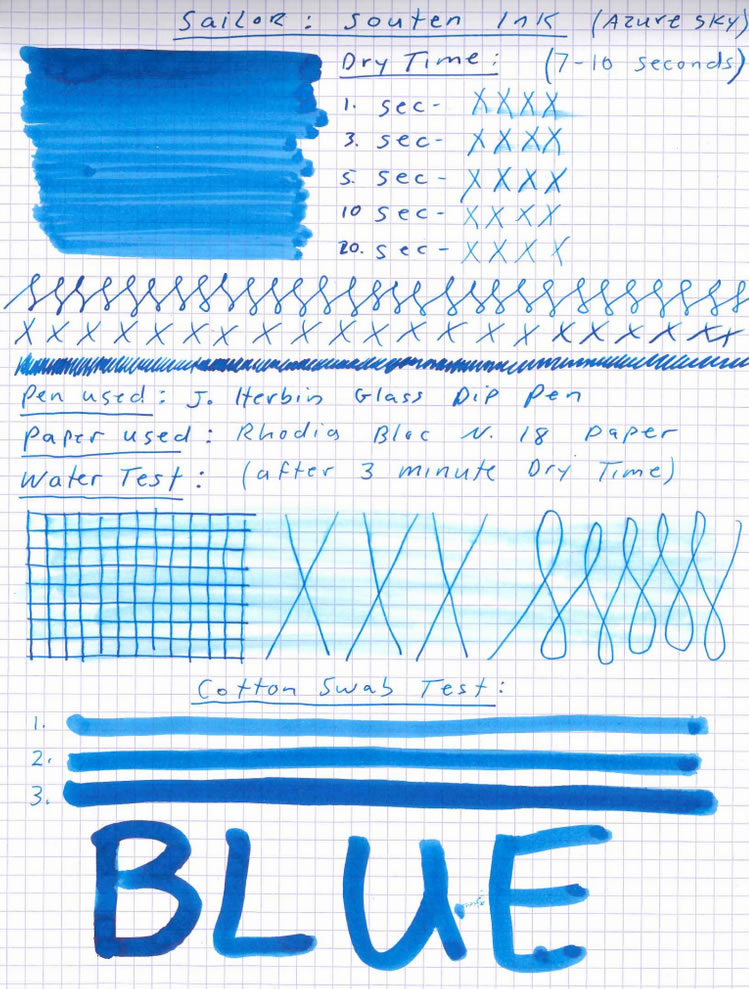 Sailor: Souten Ink (Azure Sky)
Dry Time: (7-10 seconds)
1. sec- X X X X
3. sec- X X X X
5. sec- X X X X
10 sec- X X X X
20. sec- X X X X
X X X X X X X X X X X X X X X X X X X X X
Pen used: J. Herbin Glass Dip Pen
Paper used: Rhodia Bloc N. 18 Paper
Water Test: (after 3 minute Dry Time)
X X X
Cotton Swab Test:
1.
2.
3.
BLUE